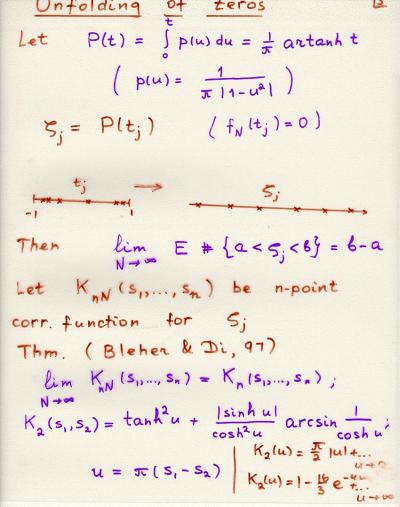 Unfolding of zeros
Let P(t) = ∫₀ᵗ p(u) du = 1/π artanh t
( p(u) = 1/(π |1-u²|) )
ζⱼ = P(tⱼ) ( f_N(tⱼ) = 0 )
tⱼ → ζⱼ
-1 1
Then lim_{N→∞} E # {a < ζⱼ < b} = b-a
Let K_{nN}(s₁,...,sₙ) be n-point
corr. function for ζⱼ
Thm. (Bleher & Di, 97)
lim_{N→∞} K_{nN}(s₁,...,sₙ) = Kₙ(s₁,...,sₙ) ;
K₂(s₁,s₂) = tanh²u + |sinh u|/cosh²u arcsin 1/cosh u ;
u = π(s₁-s₂)
K₂(u) = π/2 |u|+...
u→0
K₂(u) = 1 - 16/3 e^{-4u}+...
u→∞